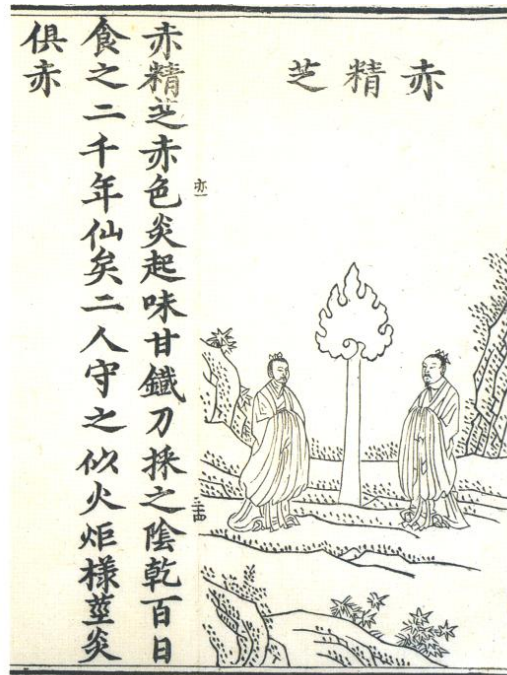 赤精芝
赤精芝赤色炎起味甘鐵刀採之陰乾百日
食之二千年仙矣二人守之似火炬樣莖炎
俱赤
亦一
三十四